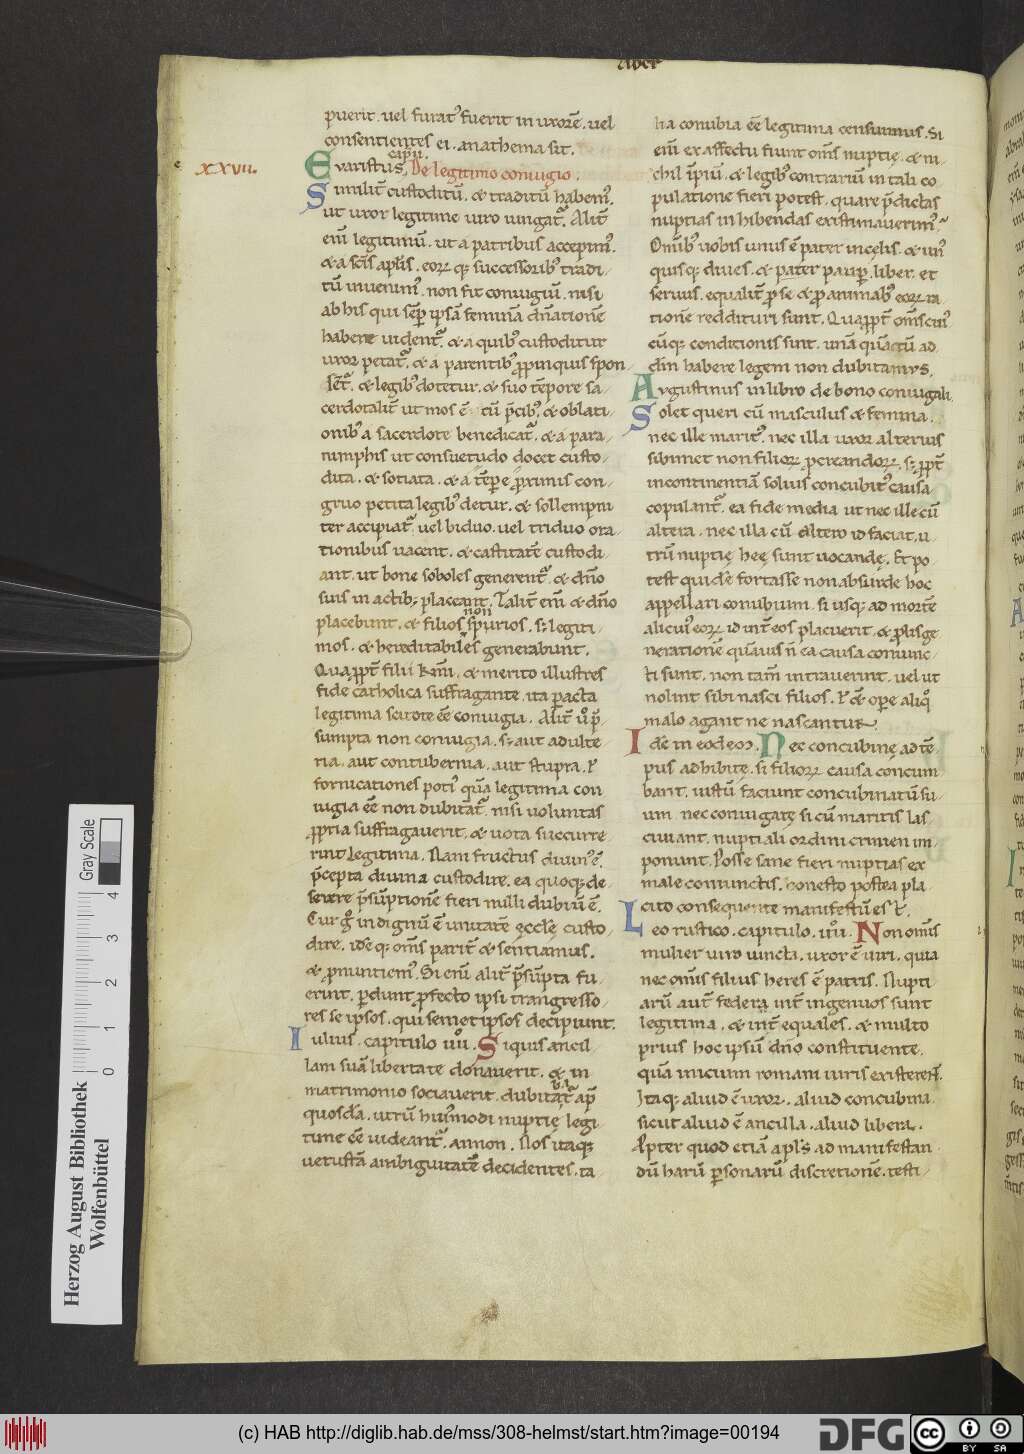 Liber
puerit. uel furat᾽ fuerit in uxorē. uel
consentientes ei. anathema sit.
xxvii.
Evaristus capii. De legitimo coniugio.
Similit̄ custoditū. & traditū habem᾽.
ut uxor legitime uiro iungat᷑. Alit̄
eni̅ legitimū. ut a patribus accepim᾽.
& a scīs aplīs. eoꝝ q; successorib᾽ tradi-
tū inuenim᾽. non fit coniugiū. nisi
ab his qui sēp ipsā feminā dn̄ationē
habere uident᷑. & a quib᾽ custoditur
uxor petat᷑. & a parentib᾽ ꝓpinquis spon-
set᷑. & legib᾽ dotetur. & suo tēpore sa-
cerdotalit̄ ut mos ē cū p̄cib᾽. & oblati-
onib᾽ a sacerdote benedicat᷑. & a para-
nimphis ut consuetudo docet custo-
dita. & sotiata. & a tēpr̄e proximis con-
gruo petita legib᾽ detur. & sollempni
ter accipiat᷑. uel biduo. uel triduo ora-
tionibus uacent. & castitatē custodi-
ant. ut bone soboles generent᷑. & dn̄o
suis in actib; placeant. Talit̄ eni̅ & dn̄o
placebunt. & filios non spurios. s; legiti-
mos. & hereditabiles generabunt.
Quaꝓpt̄ filii k̄mi. & merito illustres
fide catholica suffragante. ita ꝑacta
legitima scitote eē coniugia. Alit̄ ů p̄-
sumpta non coniugia. s; aut adulte-
ria. aut contubernia. aut stupra. ł
fornicationes poti᾽ quā legitima con-
iugia eē non dubitat᷑. nisi uoluntas
ꝓpria suffragauerit. & uota succurre-
rint legitima. Nam fructus diuin᾽ ē.
p̄cepta diuina custodire. ea quoq; de-
serere p̄sūptionē fieri nulli dubiū ē.
Cur g̊ indignū ē unitatē ęcclē custo-
dire. idē q; om̄s parit̄ & sentiamus.
& ꝓnuntiem᾽. Si eni̅ alit̄ p̄sūpta fu-
erint. ꝑdunt ꝓfecto ipsi trangresso-
res se ipsos. qui semet ipsos decipiunt.
Iulius. capitulo iiii. Siquis ancil-
lam suā libertate donauerit. & in
matrimonio sociauerit. dubitabat᷑ ap̄
quosdā. utrū hui᾽modi nuptię legi-
time eē uideant᷑. annon. Nos itaq;
uetustā ambiguitatē decidentes. ta-
lia conubia eē legitima censuimus. Si
eni̅ ex affectu fiunt om̄s nuptię. & ni-
chil ip̄iū. & legib᾽ contrariū in tali co-
pulatione fieri potest. quare p̄dictas
nuptias inhibendas existimauerim᾽?
Om̄ib᾽ uobis unus ē pater in cęlis. & un᾽
quisq; diues. & pater paup̄. liber. et
seruus. equalit̄ ꝓ se & ꝓ animab᾽ eoꝝ ra-
tionē reddituri sunt. Quaꝓpt̄ om̄s cui᾽-
cūq; conditionis sint. unā quātū ad
dn̄m habere legem non dubitamus.
Augustinus in libro de bono coniugali.
Solet queri cū masculus & femina.
nec ille marit᾽. nec illa uxor alterius
sibimet non filioꝝ ꝓcreandoꝝ. s; ꝓpt̄
incontinentiā solius concubit᾽ causa
copulant᷑. ea fide media ut nec ille cū
altera. nec illa cū altero id faciat. u-
trū nuptię heę sunt uocandę. Et po-
test quidē fortasse non absurde hoc
appellari conubium. si usq; ad mortē
alicui᾽ eoꝝ id int̄ eos placuerit. & ꝓlis ge-
nerationē quāuis n̄ ea causa coniunc-
ti sunt. non tam̄ uitauerint. uel ut
nolint sibi nasci filios. ł & ope aliq̊
malo agant ne nascantur.
Idē in eodem. Nec concubinę ad tē-
pus adhibitę. si filioꝝ causa concum-
bant. iustū faciunt concubinatū su-
um. nec coniugatę si cū maritis las-
ciuiant. nuptiali ordini crimen im-
ponunt. Posse sane fieri nuptias ex
male coniunctis. honesto postea pla-
cito consequente manifestū est.
Leo rustico. capitulo. iiii. Non om̄is
mulier uiro iuncta. uxor ē uiri. quia
nec om̄is filius heres ē patris. Nupti-
arū aut̄ federa int̄ ingenuos sunt
legitima. & int̄ equales. & multo
prius hoc ipsū dn̄o constituente.
quā inicium romani iuris existeret.
Itaq; aliud ē uxor. aliud concubina.
sicut aliud ē ancilla. aliud libera.
Apter quod etiā apl̄s ad manifestan-
dū harū ꝑsonarū discretionē. testi-
Gray Scale
0 1 2 3 4
Herzog August Bibliothek
Wolfenbüttel
(c) HAB http://diglib.hab.de/mss/308-helmst/start.htm?image=00194
DFG
CC BY SA